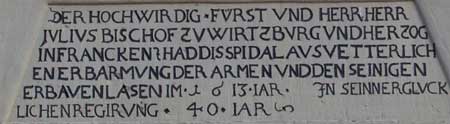 DER HOCHWIRDIG · FÜRST VND HERR HERR
IVLIVS BISCHOF ZV WIRTZBVRG VND HERZOG
IN FRANCKEN HAD DIS SPIDAL AVS VETTERLICH
EN ERBARMVNG DER ARMEN VND DEN SEINIGEN
ERBAVEN LASEN IM · 1613 · IAR · IN SEINNER GLVCK
LICHEN REGIRVNG · 40 · IAR